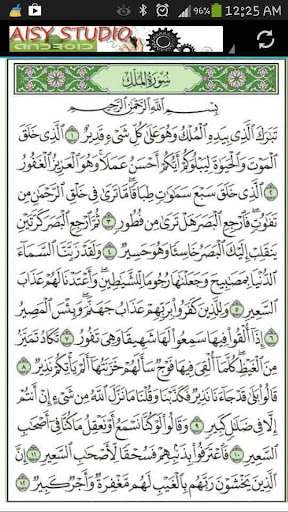 96% 12:25 AM
AISY STUDIO
ANDROID
سُورَةُ المُلْكِ
بِسْمِ ٱللَّهِ ٱلرَّحْمَٰنِ ٱلرَّحِيمِ
تَبَٰرَكَ ٱلَّذِى بِيَدِهِ ٱلْمُلْكُ وَهُوَ عَلَىٰ كُلِّ شَىْءٍ قَدِيرٌ ١ ٱلَّذِى خَلَقَ
ٱلْمَوْتَ وَٱلْحَيَوٰةَ لِيَبْلُوَكُمْ أَيُّكُمْ أَحْسَنُ عَمَلًا وَهُوَ ٱلْعَزِيزُ ٱلْغَفُورُ
٢ ٱلَّذِى خَلَقَ سَبْعَ سَمَٰوَٰتٍ طِبَاقًا مَّا تَرَىٰ فِى خَلْقِ ٱلرَّحْمَٰنِ مِن
تَفَٰوُتٍ فَٱرْجِعِ ٱلْبَصَرَ هَلْ تَرَىٰ مِن فُطُورٍ ٣ ثُمَّ ٱرْجِعِ ٱلْبَصَرَ كَرَّتَيْنِ
يَنقَلِبْ إِلَيْكَ ٱلْبَصَرُ خَاسِئًا وَهُوَ حَسِيرٌ ٤ وَلَقَدْ زَيَّنَّا ٱلسَّمَآءَ
ٱلدُّنْيَا بِمَصَٰبِيحَ وَجَعَلْنَٰهَا رُجُومًا لِّلشَّيَٰطِينِ وَأَعْتَدْنَا لَهُمْ عَذَابَ
ٱلسَّعِيرِ ٥ وَلِلَّذِينَ كَفَرُوا۟ بِرَبِّهِمْ عَذَابُ جَهَنَّمَ وَبِئْسَ ٱلْمَصِيرُ
٦ إِذَآ أُلْقُوا۟ فِيهَا سَمِعُوا۟ لَهَا شَهِيقًا وَهِىَ تَفُورُ ٧ تَكَادُ تَمَيَّزُ
مِنَ ٱلْغَيْظِ كُلَّمَآ أُلْقِىَ فِيهَا فَوْجٌ سَأَلَهُمْ خَزَنَتُهَآ أَلَمْ يَأْتِكُمْ نَذِيرٌ ٨
قَالُوا۟ بَلَىٰ قَدْ جَآءَنَا نَذِيرٌ فَكَذَّبْنَا وَقُلْنَا مَا نَزَّلَ ٱللَّهُ مِن شَىْءٍ إِنْ أَنتُمْ
إِلَّا فِى ضَلَٰلٍ كَبِيرٍ ٩ وَقَالُوا۟ لَوْ كُنَّا نَسْمَعُ أَوْ نَعْقِلُ مَا كُنَّا فِىٓ أَصْحَٰبِ
ٱلسَّعِيرِ ١٠ فَٱعْتَرَفُوا۟ بِذَنۢبِهِمْ فَسُحْقًا لِّأَصْحَٰبِ ٱلسَّعِيرِ ١١ إِنَّ
ٱلَّذِينَ يَخْشَوْنَ رَبَّهُم بِٱلْغَيْبِ لَهُم مَّغْفِرَةٌ وَأَجْرٌ كَبِيرٌ ١٢